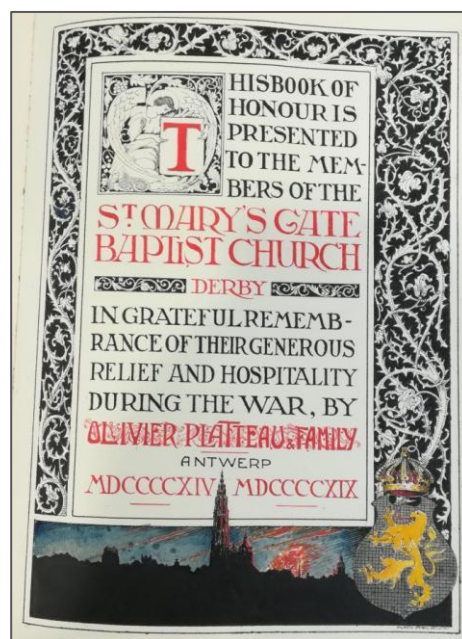 THIS BOOK OF
HONOUR IS
PRESENTED
TO THE MEM-
BERS OF THE
ST MARY'S GATE
BAPTIST CHURCH
DERBY
IN GRATEFUL REMEMB-
RANCE OF THEIR GENEROUS
RELIEF AND HOSPITALITY
DURING THE WAR, BY
OLIVIER PLATTEAU & FAMILY
ANTWERP
MDCCCCXIV MDCCCCXIX